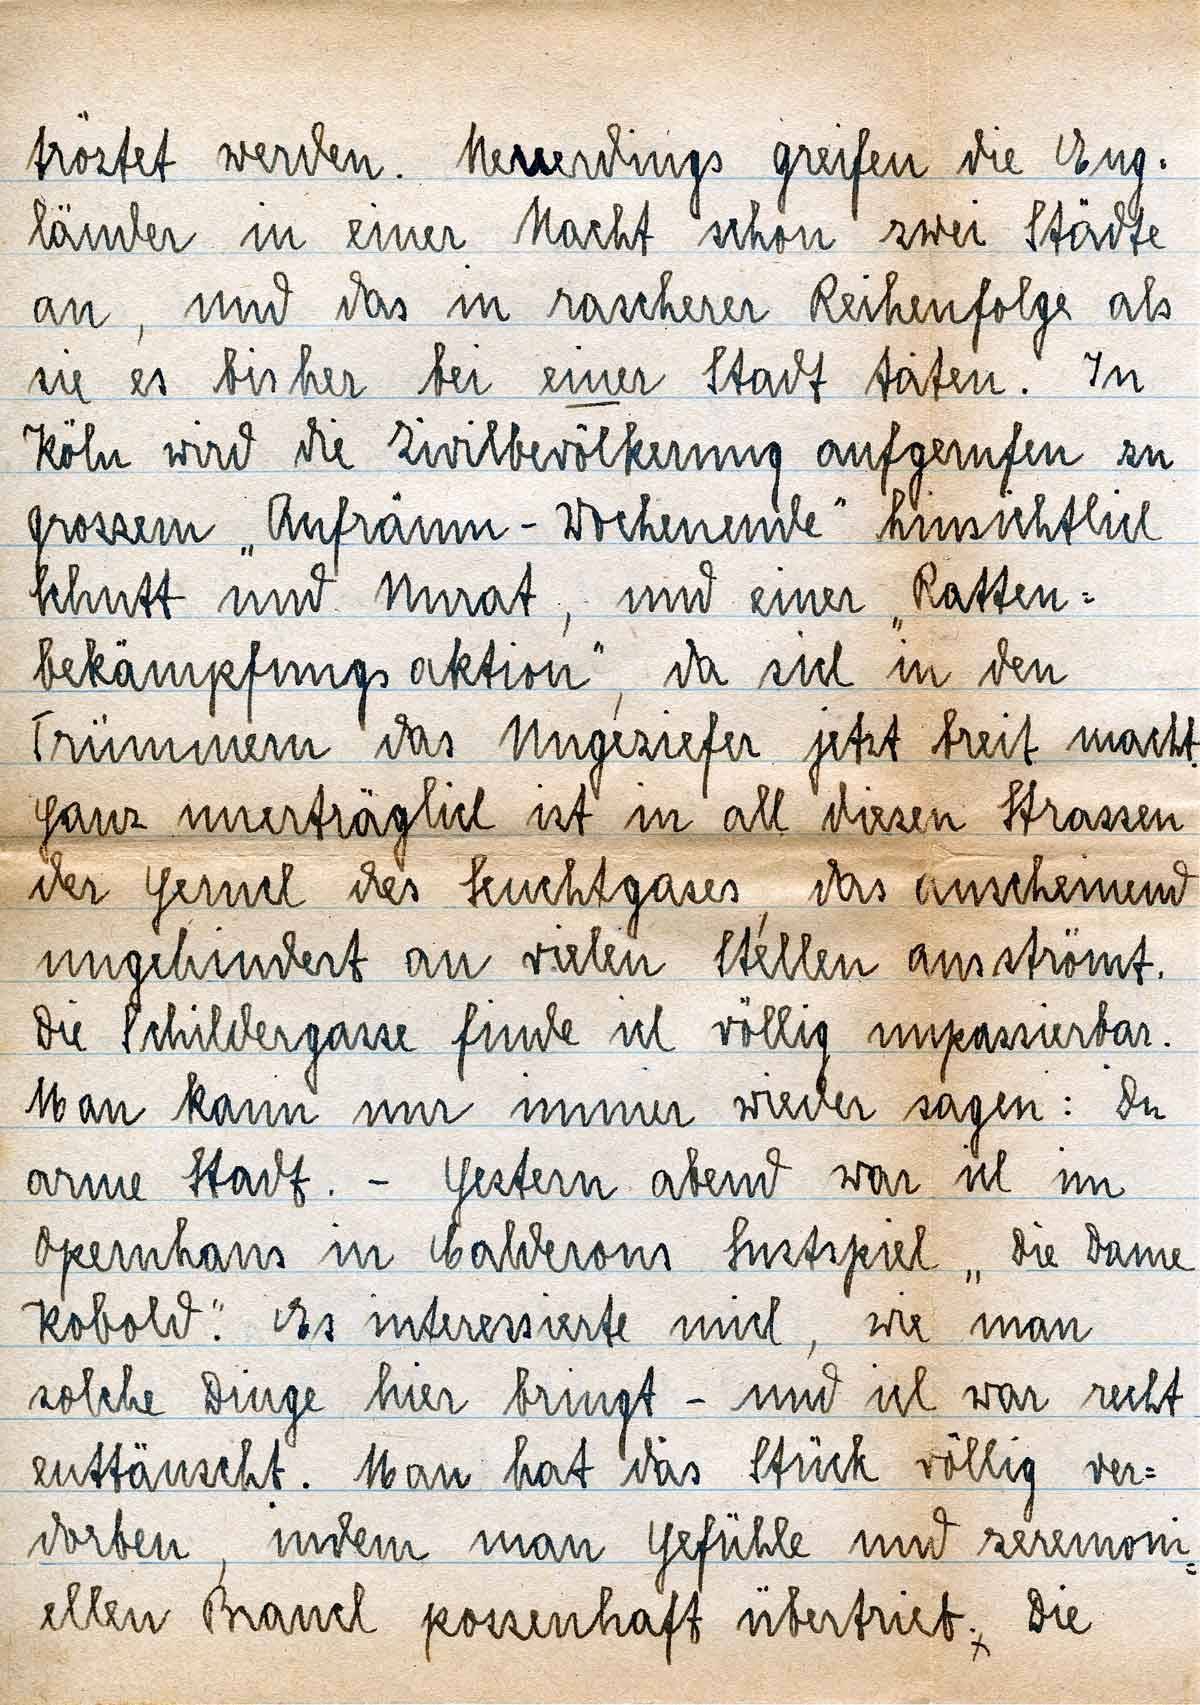 tröstet werden. Neuerdings greifen die Eng-
länder in einer Nacht schon zwei Städte
an, und das in rascherer Reihenfolge als
sie es bisher bei einer Stadt täten. In
Köln wird die Zivilbevölkerung aufgerufen zu
grossem „Aufräum-Wochenende" hinsichtlich
Schutt und Unrat, und einer „Ratten=
bekämpfungsaktion", da sich in den
Trümmern das Ungeziefer jetzt breit macht.
Ganz unerträglich ist in all diesen Strassen
der Geruch des Leuchtgases, das anscheinend
ungehindert an vielen Stellen ausströmt.
Die Schildergasse finde ich völlig unpassierbar.
Man kann nur immer wieder sagen: Du
arme Stadt. - Gestern abend war ich im
Opernhaus in Calderons Lustspiel „Die Dame
Kobold". Es interessierte mich, wie man
solche Dinge hier bringt - und ich war recht
enttäuscht. Man hat das Stück völlig ver=
dorben, indem man Gefühle und zeremoni=
ellen Brauch possenhaft übertrieb. x Die